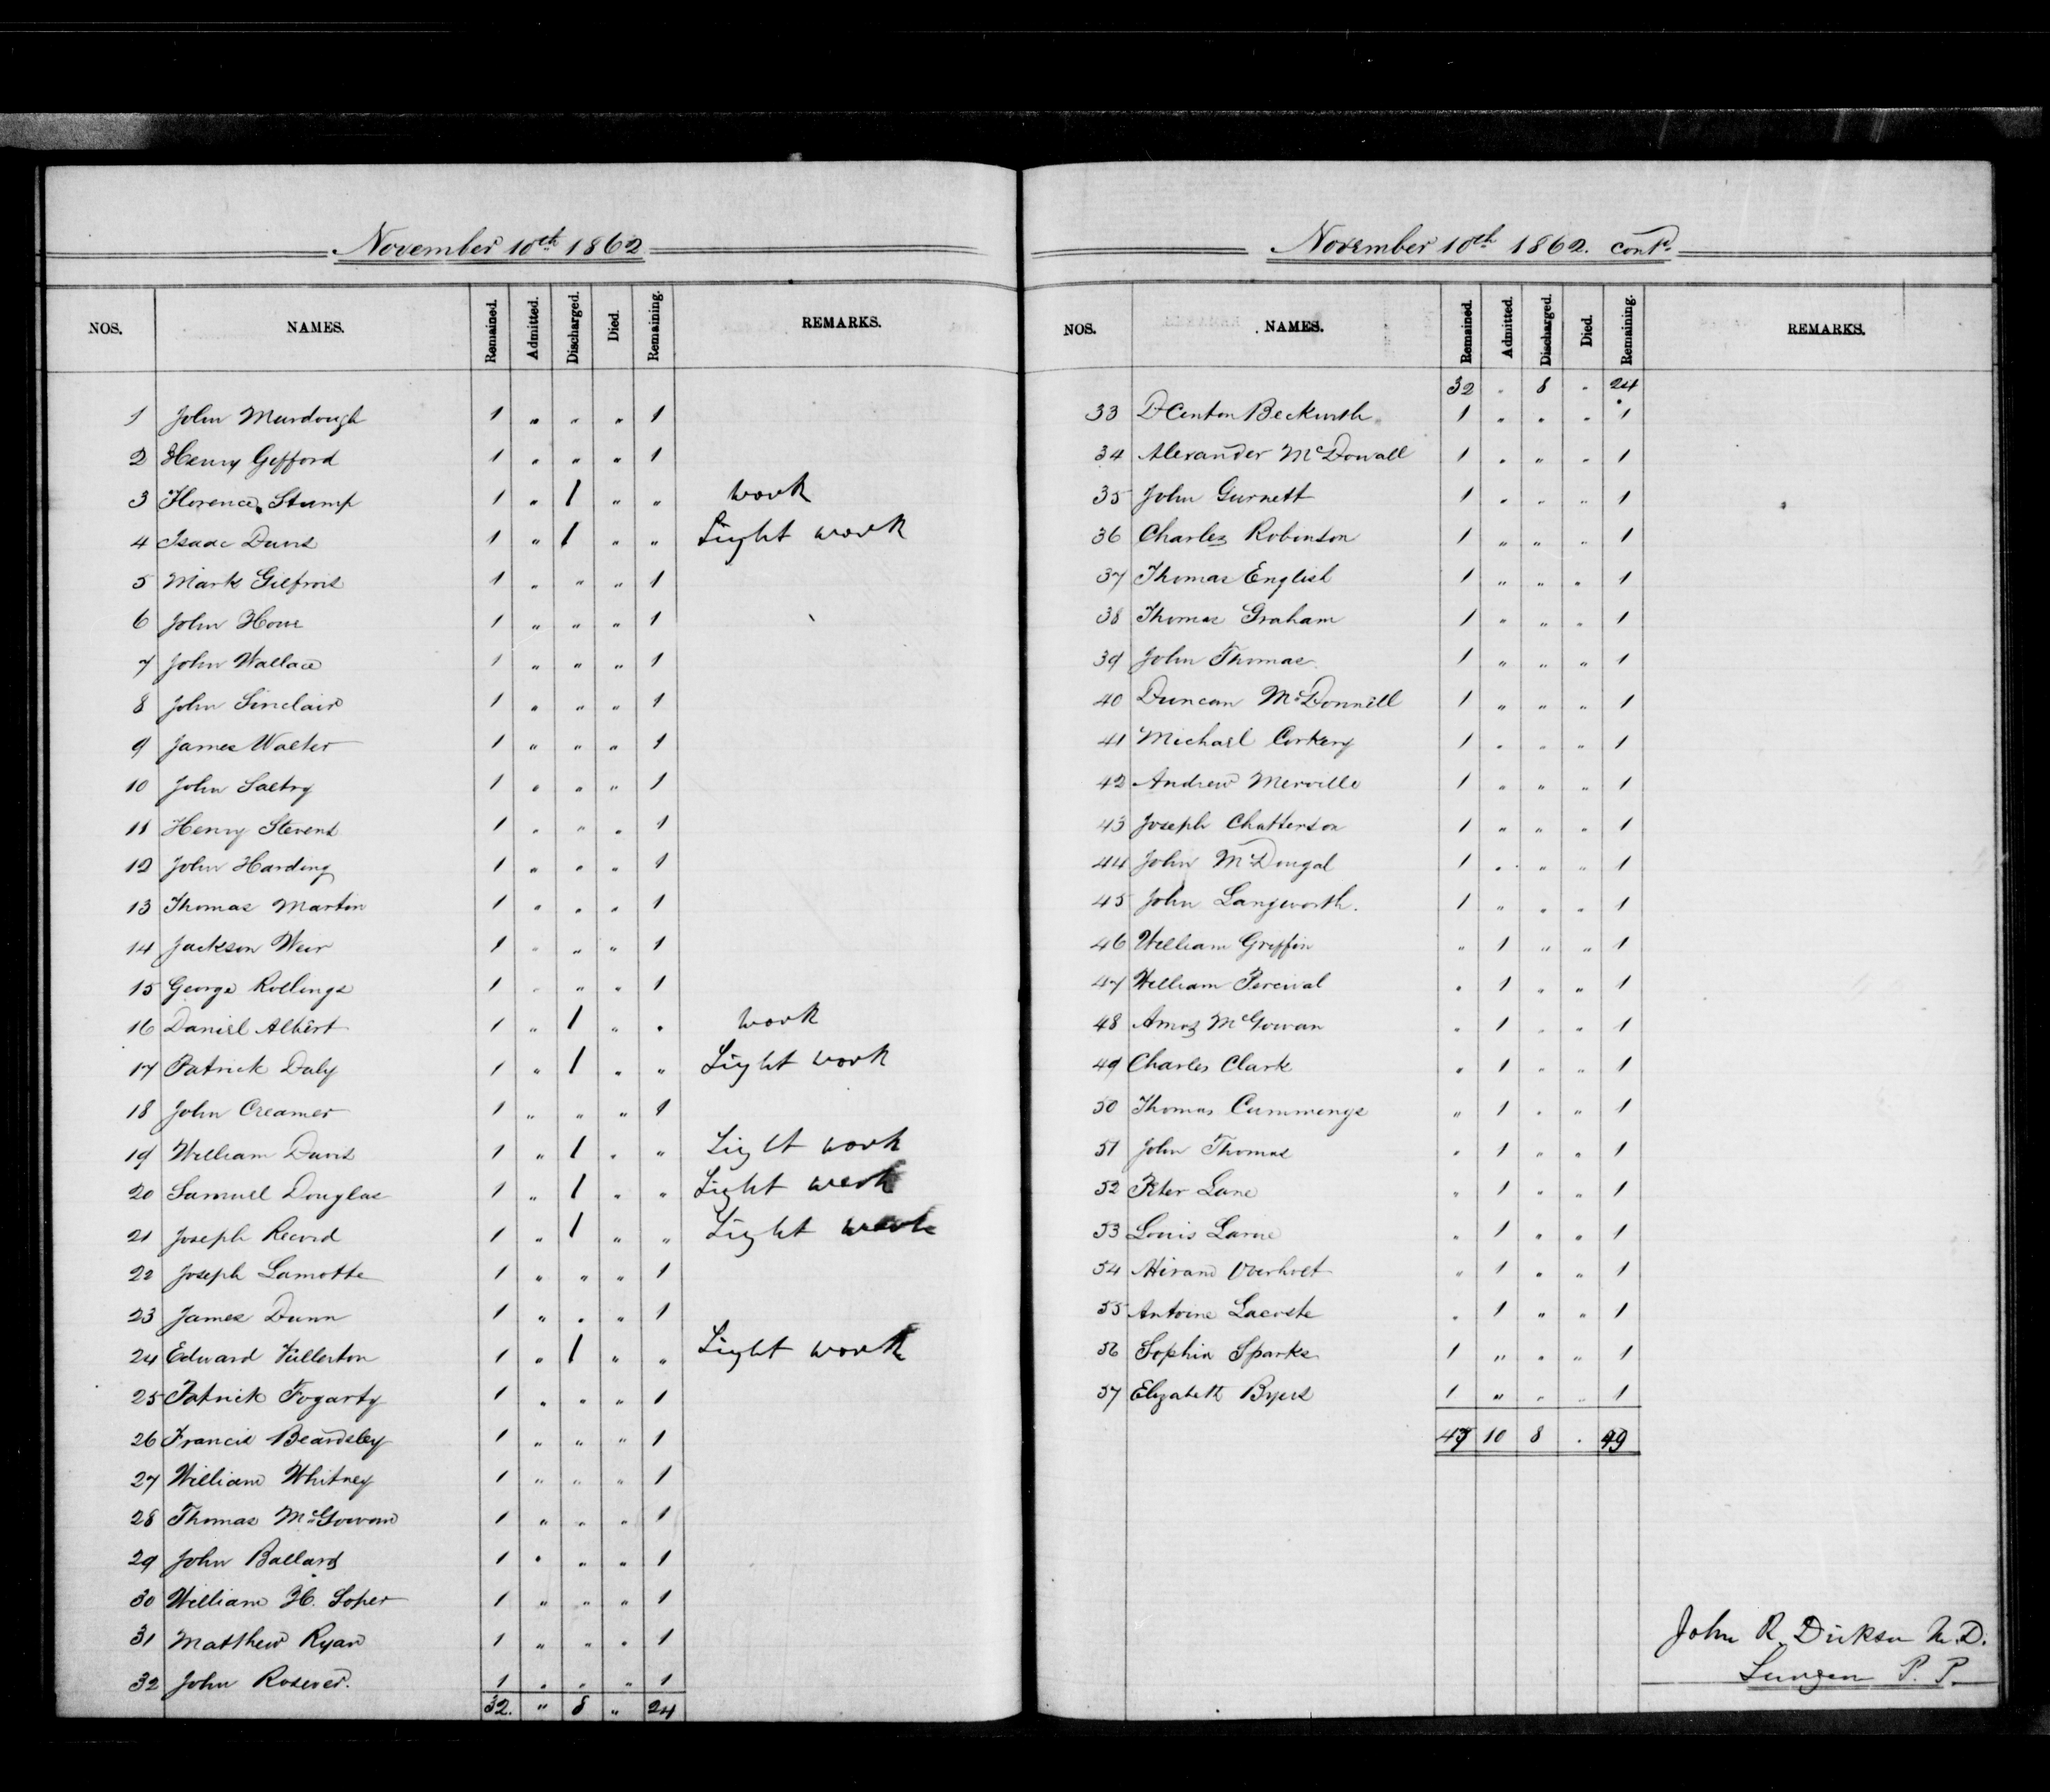 November 10th 1862
NOS. NAMES. Remained. Admitted. Discharged. Died. Remaining. REMARKS.
1 John Murdough 1 " " " 1
2 Henry Gifford 1 " " " 1
3 Florence Stump 1 " 1 " " work
4 Isaac Davis 1 " 1 " " Light work
5 Mark Gilfrois 1 " " " 1
6 John Howe 1 " " " 1
7 John Wallace 1 " " " 1
8 John Sinclair 1 " " " 1
9 James Walter 1 " " " 1
10 John Saltry 1 " " " 1
11 Henry Stevens 1 " " " 1
12 John Harding 1 " " " 1
13 Thomas Martin 1 " " " 1
14 Jackson Weir 1 " " " 1
15 George Rollings 1 " " " 1
16 Daniel Albert 1 " 1 " " work
17 Patrick Daly 1 " 1 " " Light work
18 John Creamer 1 " " " 1
19 William Davis 1 " 1 " " Light work
20 Samuel Douglas 1 " 1 " " Light work
21 Joseph Record 1 " 1 " " Light work
22 Joseph Lamotte 1 " " " 1
23 James Dunn 1 " " " 1
24 Edward Fullerton 1 " 1 " " Light work
25 Patrick Fogarty 1 " " " 1
26 Francis Beardsley 1 " " " 1
27 William Whitney 1 " " " 1
28 Thomas McGowan 1 " " " 1
29 John Ballard 1 " " " 1
30 William H. Soper 1 " " " 1
31 Matthew Ryan 1 " " " 1
32 John Rosever. 1 " " " 1
32. " 8 " 24
November 10th 1862. contd.
NOS. NAMES. Remained. Admitted. Discharged. Died. Remaining. REMARKS.
32 " 8 " 24
33 Beckwith 1 " " " 1
34 Alexander McDowall 1 " " " 1
35 John Gurnett 1 " " " 1
36 Charles Robinson 1 " " " 1
37 Thomas English 1 " " " 1
38 Thomas Graham 1 " " " 1
39 John Thomas 1 " " " 1
40 Duncan McDonnell 1 " " " 1
41 Michael Corkery 1 " " " 1
42 Andrew Merville 1 " " " 1
43 Joseph Chatterson 1 " " " 1
44 John McDougal 1 " " " 1
45 John Langworth. 1 " " " 1
46 William Griffin " 1 " " 1
47 William Percival " 1 " " 1
48 Amos McGowan " 1 " " 1
49 Charles Clark " 1 " " 1
50 Thomas Cummings " 1 " " 1
51 John Thomas " 1 " " 1
52 Peter Lane " 1 " " 1
53 Louis Larue " 1 " " 1
54 Hiram Overholt " 1 " " 1
55 Antoine Lacoste " 1 " " 1
56 Sophia Sparks 1 " " " 1
57 Elizabeth Byers 1 " " " 1
47 10 8 " 49
John R. Dickson M.D.
Surgeon P. P.